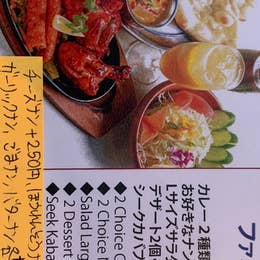 ファ
カレー2種類
お好きなナン
Lサイズサラダ
デザート2個
シークカバブ
◆2 Choice
◆2 Choice
◆Salad Larg
◆2 Dessert
◆Seek Kaba
チーズナン+250円, ほうれんそう
ガーリックナン, ごまナン, バターナン 各